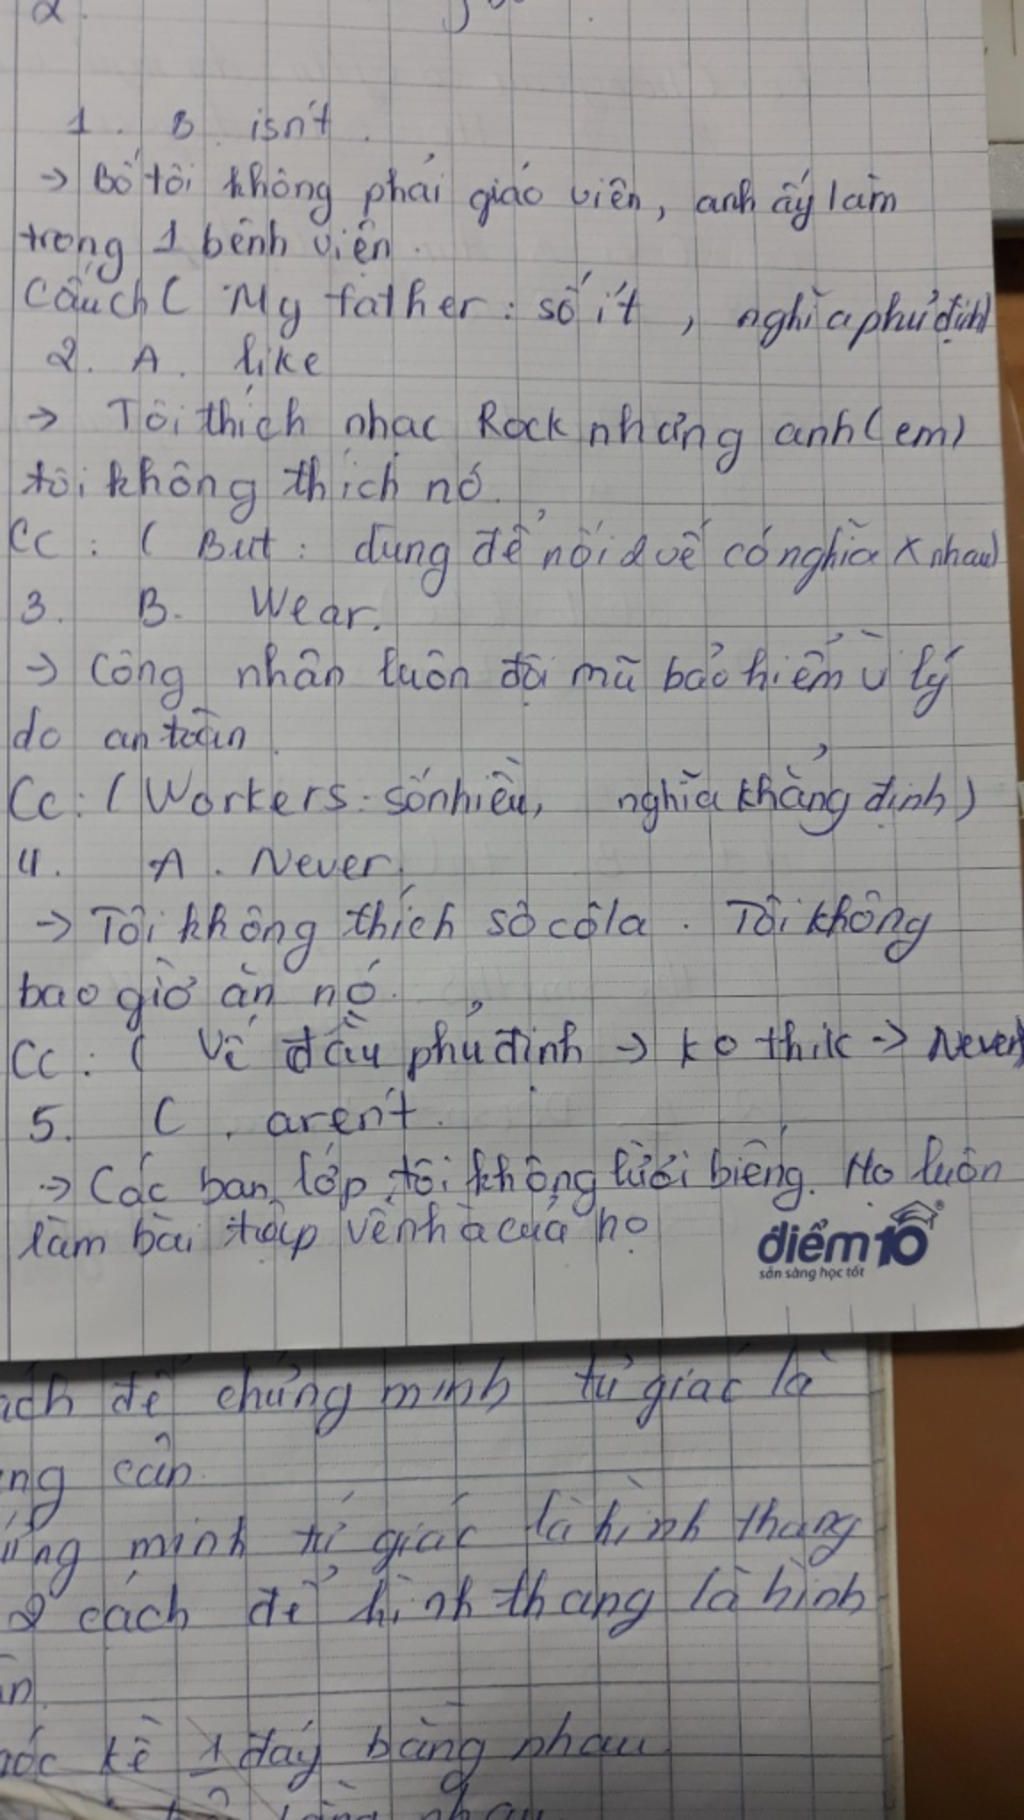 2.
1. B isn't.
→ Bố tôi không phải giáo viên, anh ấy làm
trong 1 bệnh viện.
Cấuch( My father: số ít, nghĩa phủ định)
2. A. like
→ Tôi thích nhạc Rock nhưng anh(em)
tôi không thích nó.
Cc: ( But: dùng để nối 2 vế có nghĩa x nhau)
3. B. Wear.
→ Công nhân luôn đội mũ bảo hiểm vì lý
do an toàn.
Cc: (Workers: số nhiều, nghĩa khẳng định)
4. A. Never.
→ Tôi không thích sôcôla. Tôi không
bao giờ ăn nó.
Cc: ( Vế đầu phủ định → ko thik → Never)
5. C. aren't.
→ Các bạn lớp tôi không lười biếng. Họ luôn
làm bài tập về nhà của họ
điểm10
sẵn sàng học tốt
ách để chứng minh tứ giác là
ng cân.
ứng minh tứ giác là hình thang
2 cách để hình thang là hình
ân.
góc kề 1 đáy bằng nhau
bằng nhau